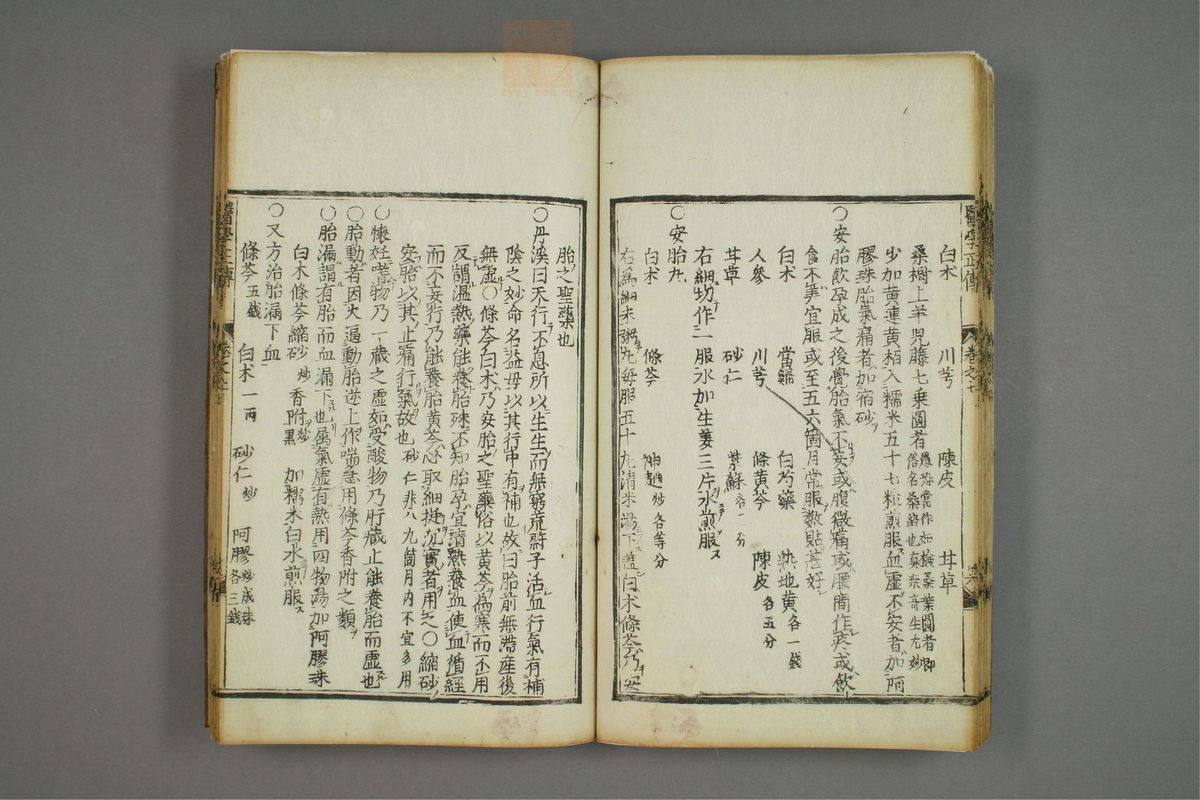 醫學正傳 卷之七
白术 川芎 陳皮 甘草
桑樹上羊兒藤七葉圓者
俗名桑絡也真桑寄生尤妙
少加黄連黄栢入糯米五十七粒煎服血虛不安者加阿
膠珠胎氣痛者加宿砂
○安胎飲孕成之後覺胎氣不安或腹微痛或腰間作疼或飲
食不美宜服或至五六箇月常服數貼甚好
白术 當歸 白芍藥 熟地黄各一錢
人參 川芎 條黄芩 陳皮各五分
甘草 砂仁 紫蘇各一分
右細切作一服水加生姜三片水煎服
○安胎丸
白术 條芩 神麯炒各等分
右爲細末粥丸每服五十丸清米湯下盖白术條芩乃安
胎之聖藥也
○丹溪曰天行不息所以生生而無窮茺蔚子活血行氣有補
陰之妙命名益母以其行中有補也故曰胎前無滯産後
無虛○條芩白术乃安胎之聖藥俗以黄芩爲寒而不用
反謂温熱藥能養胎殊不知胎孕宜清熱養血使血循經
而不妄行乃能養胎黄芩必取細挺沉實者用之○縮砂
安胎以其止痛行氣故也砂仁非八九箇月内不宜多用
○懷妊嗜物乃一臓之虛如受酸物乃肝臓止能養胎而虛也
○胎動者因火逼動胎逆上作喘急用條芩香附之類
○胎漏謂有胎而血漏下也属氣虛有熱用四物湯加阿膠珠
白术條芩縮砂炒香附炒黑 加糯米白水煎服
○又方治胎漏下血
條芩五錢 白术一兩 砂仁炒 阿膠炒成珠各三錢
醫學正傳